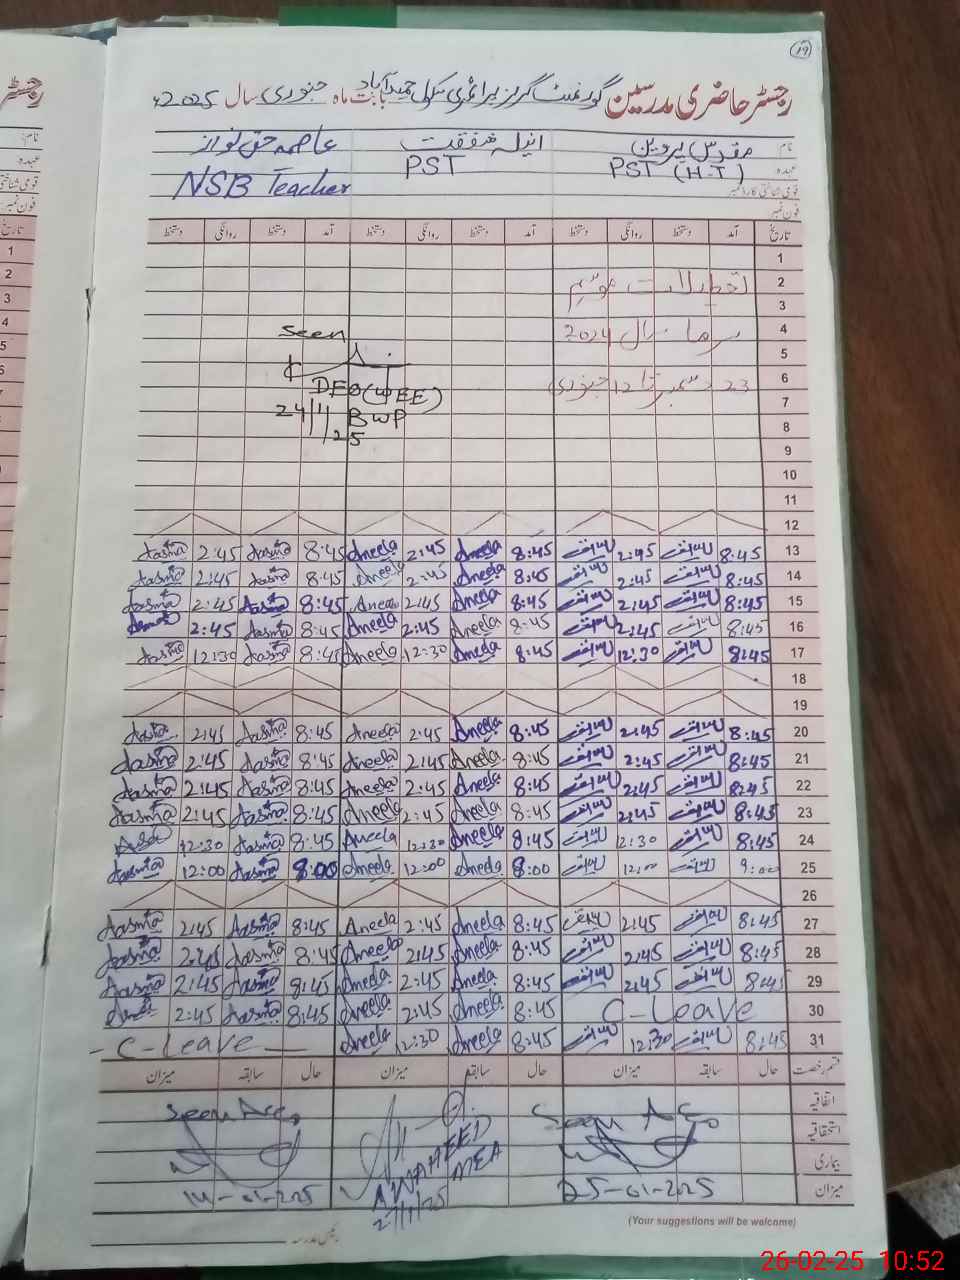 19
رجسٹر حاضری مدرسین گورنمنٹ گرلز پرائمری سکول حمیدآباد بابت ماہ جنوری سال 2025ء
نام مقدس پروین انیلہ شفقت عاصمہ حق نواز
عہدہ PST (H.T) PST NSB Teacher
قومی شناختی کارڈ نمبر
فون نمبر
تاریخ آمد دستخط روانگی دستخط آمد دستخط روانگی دستخط آمد دستخط روانگی دستخط
1
2 تعطیلات موسم
3
4 سرما سال 2024 Seen
5
6 23 دسمبر تا 12 جنوری DEO (WEE)
7 24/1/25 BWP
8
9
10
11
12
13 8:45 2:45 Aneela 8:45 Aneela 2:45 Aasma 8:45 Aasma 2:45
14 8:45 2:45 Aneela 8:45 Aneela 2:45 Aasma 8:45 Aasma 2:45
15 8:45 2:45 Aneela 8:45 Aneela 2:45 Aasma 8:45 Aasma 2:45
16 8:45 2:45 Aneela 8:45 Aneela 2:45 Aasma 8:45 Aasma 2:45
17 8:45 12:30 Aneela 8:45 Aneela 12:30 Aasma 8:45 Aasma 12:30
18
19
20 8:45 2:45 Aneela 8:45 Aneela 2:45 Aasma 8:45 Aasma 2:45
21 8:45 2:45 Aneela 8:45 Aneela 2:45 Aasma 8:45 Aasma 2:45
22 8:45 2:45 Aneela 8:45 Aneela 2:45 Aasma 8:45 Aasma 2:45
23 8:45 2:45 Aneela 8:45 Aneela 2:45 Aasma 8:45 Aasma 2:45
24 8:45 12:30 Aneela 8:45 Aneela 12:30 Aasma 8:45 12:30
25 9:00 12:00 Aneela 8:00 Aneela 12:00 Aasma 8:00 Aasma 12:00
26
27 8:45 2:45 Aneela 8:45 Aneela 2:45 Aasma 8:45 Aasma 2:45
28 8:45 2:45 Aneela 8:45 Aneela 2:45 Aasma 8:45 Aasma 2:45
29 8:45 2:45 Aneela 8:45 Aneela 2:45 Aasma 8:45 Aasma 2:45
30 C-Leave Aneela 8:45 Aneela 2:45 Aasma 8:45 2:45
31 8:45 12:30 Aneela 8:45 Aneela 12:30 C-Leave
قسم رخصت حال سابقہ میزان حال سابقہ میزان حال سابقہ میزان
اتفاقیہ
استحقاقیہ
بیماری
میزان
Seen
25-01-2025
A WAHEED
AEA
27/1/25
Seen
14-01-2025
(Your suggestions will be welcome)
رئیس مدرسہ
26-02-25 10:52